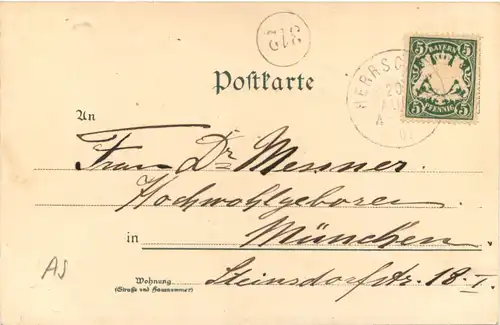 212
HERRSC
20
A
01
5 BAYERN 5
5 PFENNIG 5
Postkarte
An
Frau Dr Messner
Hochwohlgeboren
in München
Wohnung Steinsdorfstr. 18. I.
(Straße und Hausnummer)
AS